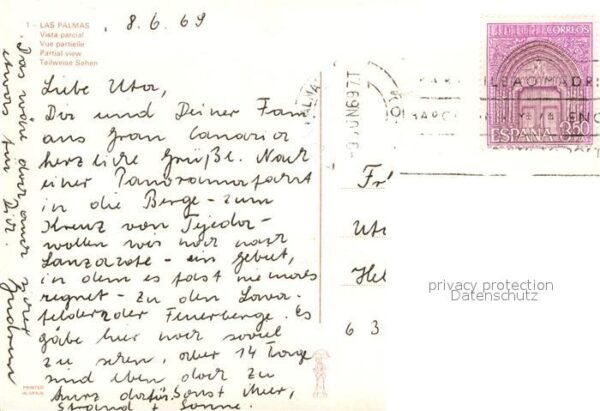 1 - LAS PALMAS
Vista parcial
Vue partielle
Partial view
Teilweise Sehen
8.6.69
Liebe Uta,
Dir und Deiner Fam
aus Gran Canaria
herzliche Grüße. Nach
einer Panoramafahrt
in die Berge - zum
Kreuz von Tejeda -
wollen wir noch nach
Lanzarote - ein Gebiet,
in dem es fast niemals
regnet - zu den Lava-
feldern der Feuerberge. Es
gäbe hier noch soviel
zu sehen, aber 14 Tage
sind eben doch zu
kurz dafür. Sonst hier,
Strand + Sonne.
Das wäre doch auch
etwas für Dich.
Gudrun
PRINTED
IN SPAIN
CORREOS
ESPAÑA 3,50
Uta
Hel
6 3
privacy protection
Datenschutz